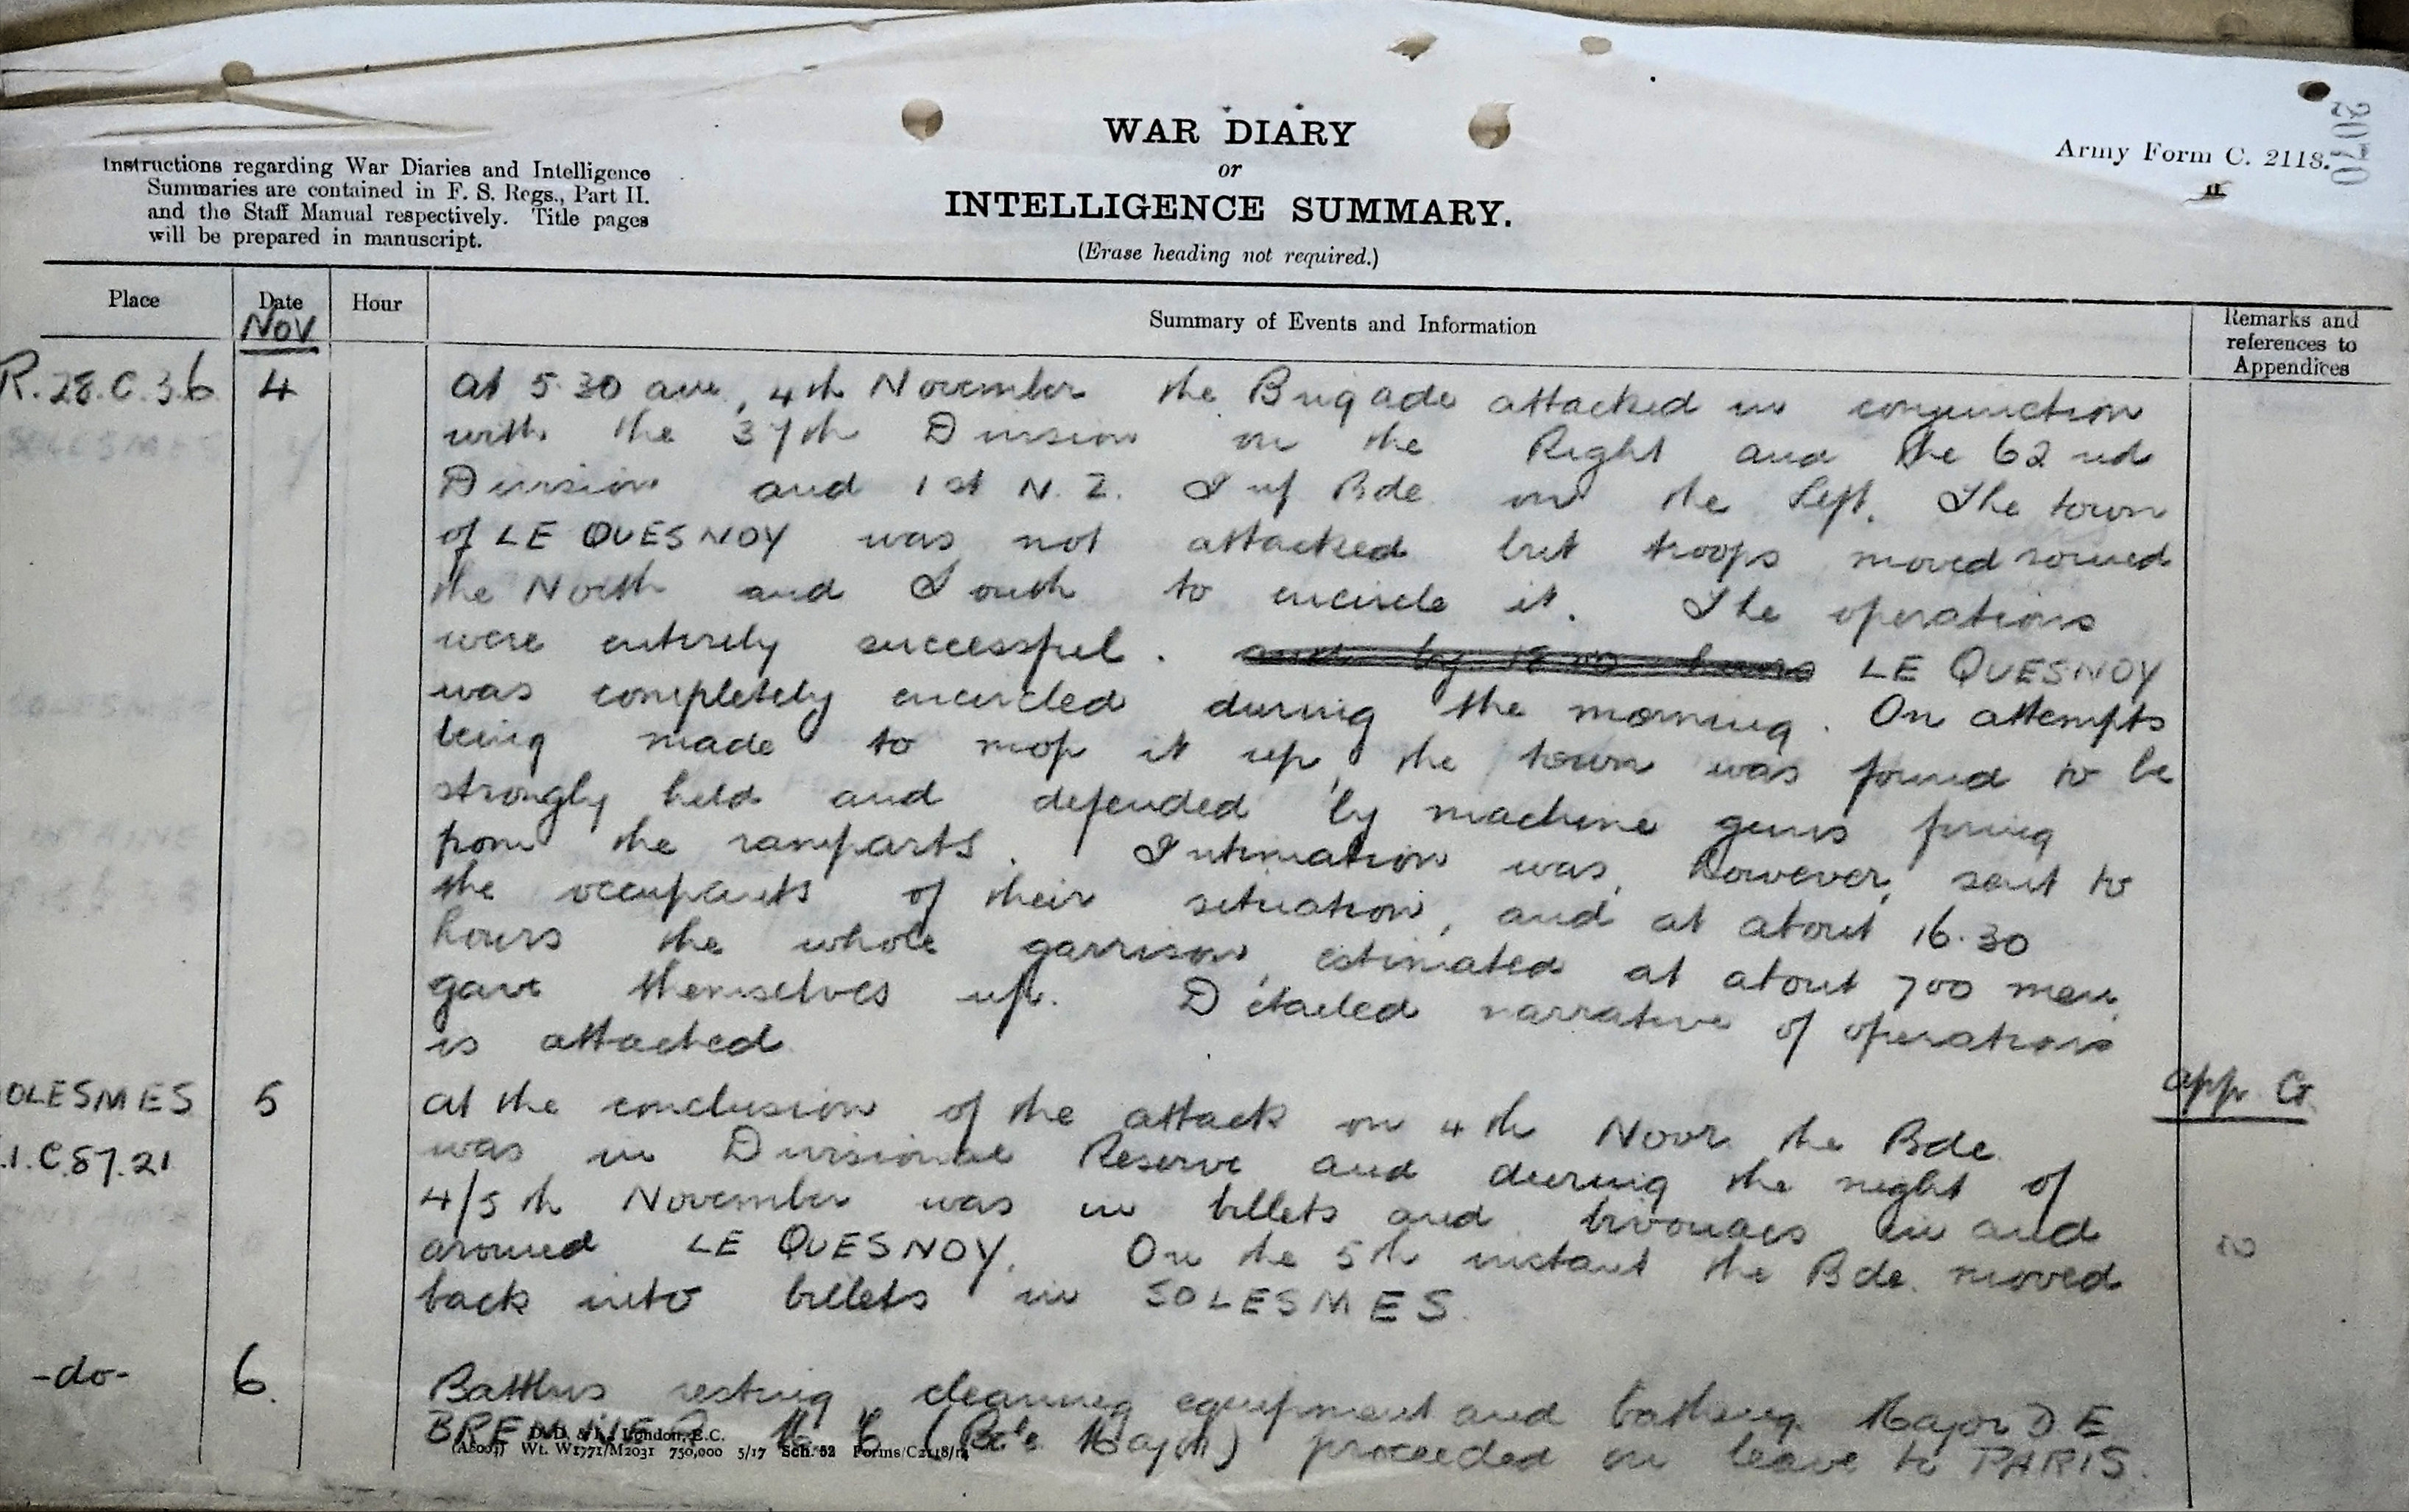 2070
Instructions regarding War Diaries and Intelligence
Summaries are contained in F. S. Regs., Part II.
and the Staff Manual respectively. Title pages
will be prepared in manuscript.
WAR DIARY
or
INTELLIGENCE SUMMARY.
(Erase heading not required.)
Army Form C. 2118.
Place
Date
NOV
Hour
Summary of Events and Information
Remarks and
references to
Appendices
R.28.C.3.6
4
At 5.30 am, 4th November the Brigade attacked in conjunction
with the 37th Division on the Right and the 62nd
Division and 1st N.Z. Inf Bde on the left. The town
of LE QUESNOY was not attacked but troops moved round
the North and South to encircle it. The operations
were entirely successful. LE QUESNOY
was completely encircled during the morning. On attempts
being made to mop it up, the town was found to be
strongly held and defended by machine guns firing
from the ramparts. Intimation was, however, sent to
the occupants of their situation, and at about 16.30
hours the whole garrison, estimated at about 700 men,
gave themselves up. Detailed narrative of operations
is attached
app. G.
OLESMES
5
.1.C.87.21
At the conclusion of the attack on 4th Novr the Bde
was in Divisional Reserve and during the night of
4/5th November was in billets and bivouacs in and
around LE QUESNOY. On the 5th instant the Bde. moved
back into billets in SOLESMES.
-do-
6.
Battlns resting, cleaning equipment and bathing. Major D.E.
BREMNER M.C. (Bde Major) proceeded on leave to PARIS.
D. D. & L., London, E.C.
Wt. W1771/M2031 750,000 5/17 Sch. 52 Forms/C2118/14